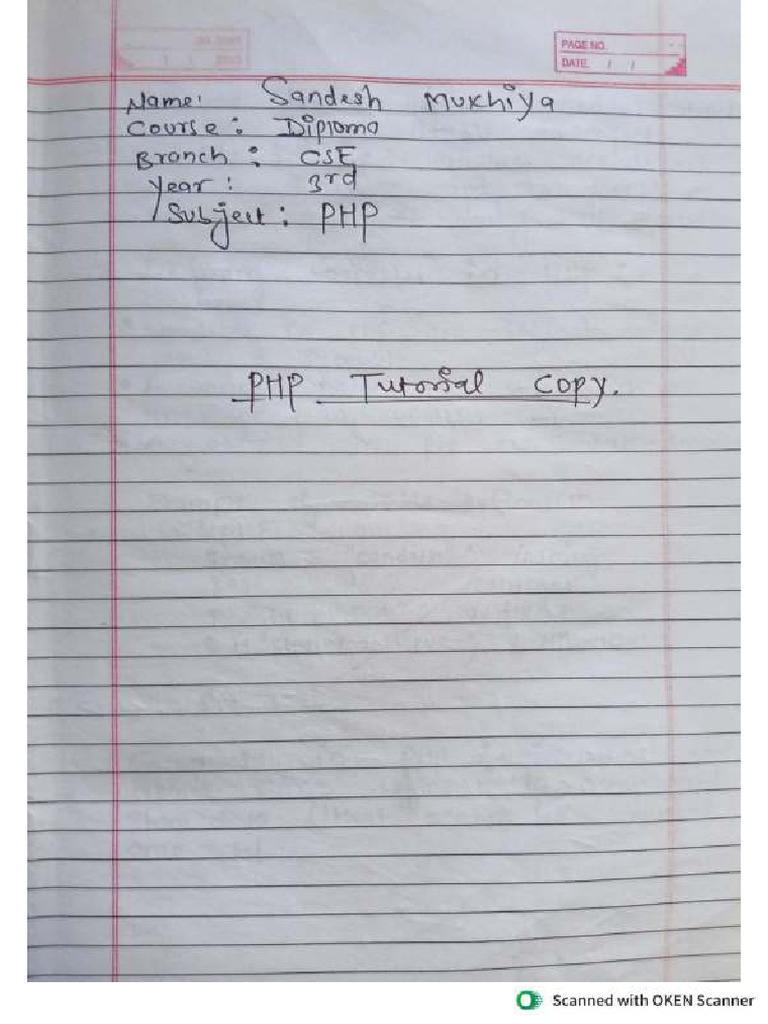 PAGE NO.
DATE. / /
Name: Sandesh Mukhiya
Course: Diploma
Branch: CSE
Year: 3rd
Subject: PHP
PHP Tutorial Copy.
Scanned with OKEN Scanner